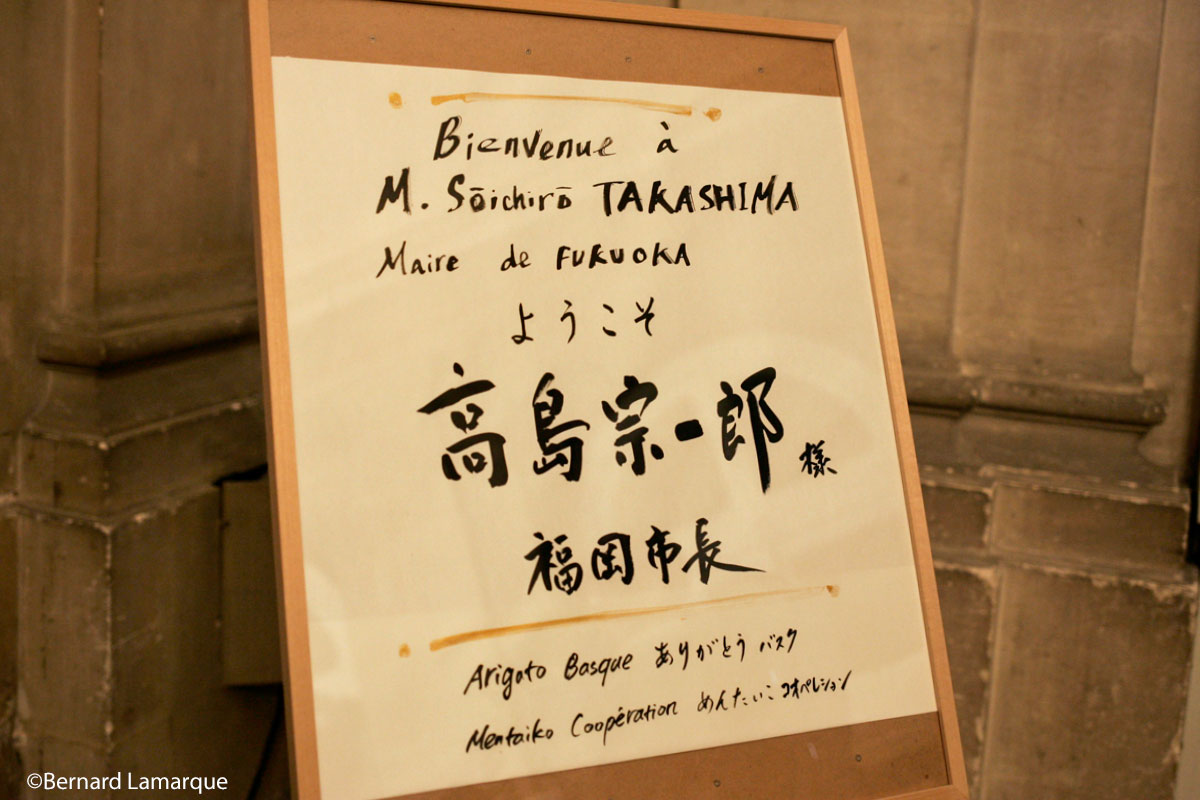 Bienvenue à
M. Sōichirō TAKASHIMA
Maire de FUKUOKA
ようこそ
高島宗一郎様
福岡市長
Arigato Basque ありがとう バスク
Mentaiko Coopération めんたいこ コオペレション
©Bernard Lamarque